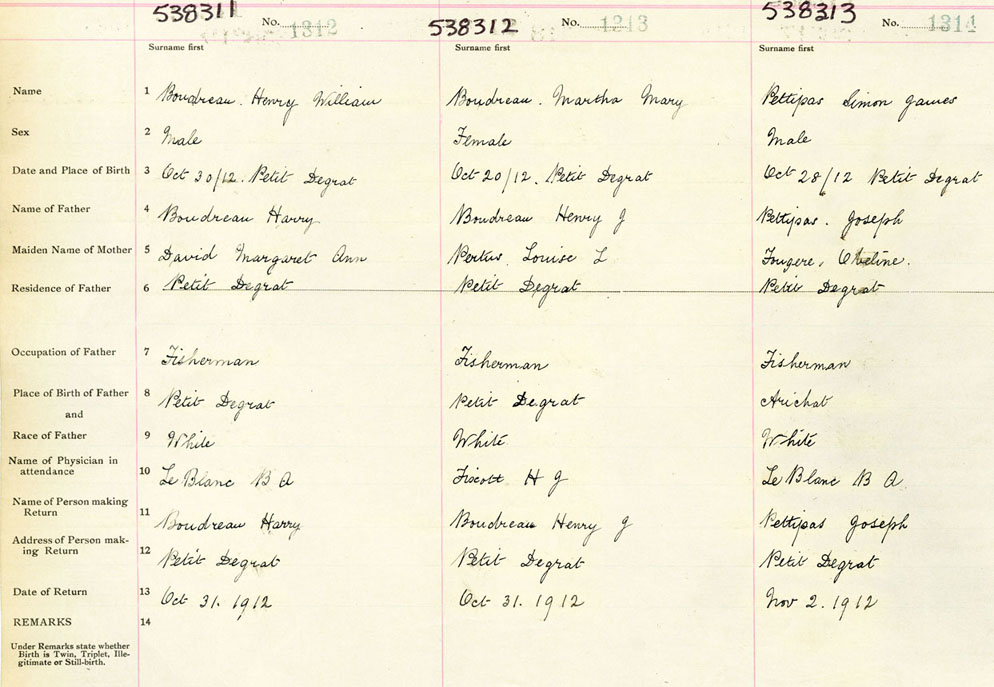 538311 No. 1312 538312 No. 1213 538313 No. 1314
Surname first Surname first Surname first
Name 1 Boudreau. Henry William Boudreau. Martha Mary Pettipas Simon James
Sex 2 Male Female Male
Date and Place of Birth 3 Oct 30/12. Petit Degrat Oct 20/12. Petit Degrat Oct 28/12 Petit Degrat
Name of Father 4 Boudreau Harry Boudreau Henry J Pettipas. Joseph
Maiden Name of Mother 5 David Margaret Ann Louise L Fougere,
Residence of Father 6 Petit Degrat Petit Degrat Petit Degrat
Occupation of Father 7 Fisherman Fisherman Fisherman
Place of Birth of Father 8 Petit Degrat Petit Degrat Arichat
and
Race of Father 9 White White White
Name of Physician in
attendance 10 Le Blanc B A Fiscott H J Le Blanc B A
Name of Person making
Return 11 Boudreau Harry Boudreau Henry J Pettipas Joseph
Address of Person mak-
ing Return 12 Petit Degrat Petit Degrat Petit Degrat
Date of Return 13 Oct 31. 1912 Oct 31. 1912 Nov 2. 1912
REMARKS 14
Under Remarks state whether
Birth is Twin, Triplet, Ille-
gitimate or Still-birth.